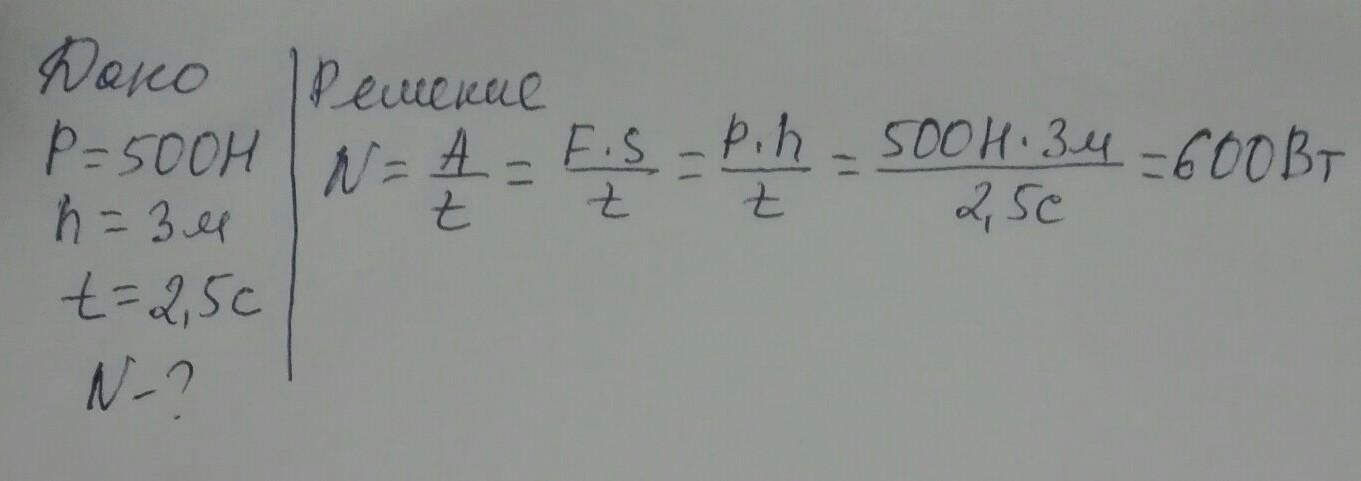 Дано
P=500Н
h=3м
t=2,5с
N-?
Решение
N= A/t = F·S/t = P·h/t = 500Н·3м/2,5с =600Вт